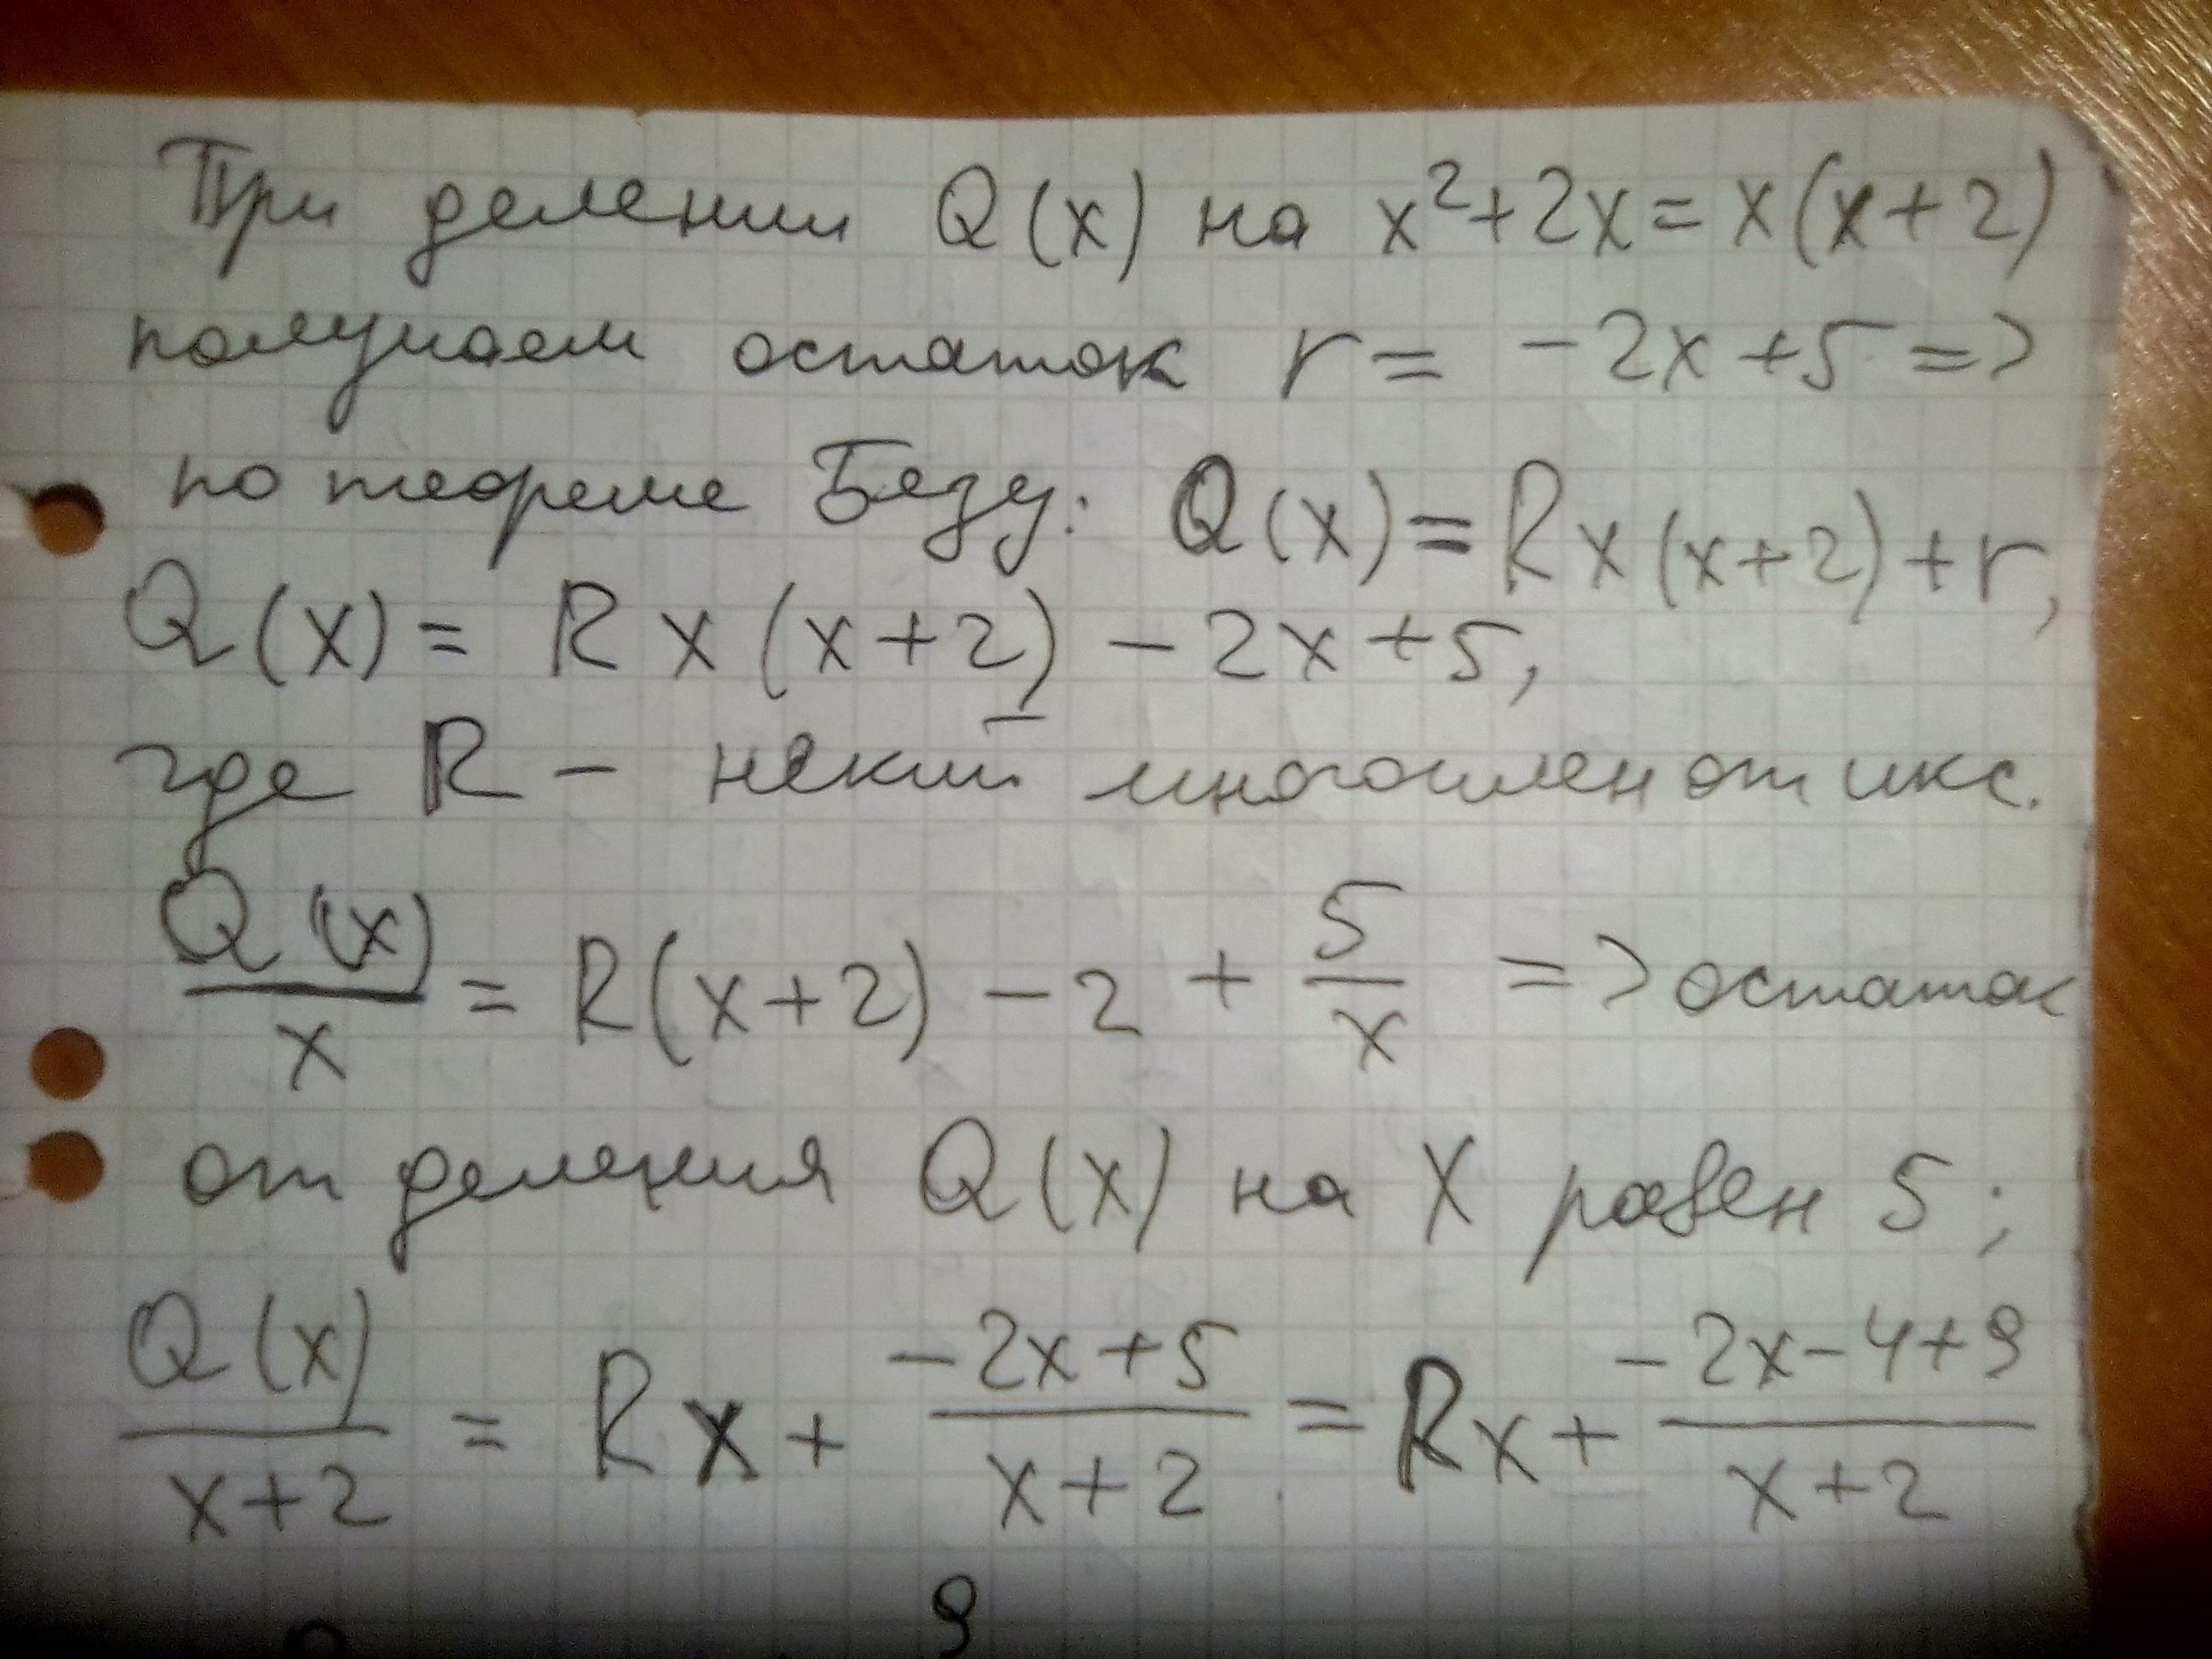 При делении Q(x) на x²+2x=x(x+2)
получаем остаток r = -2x+5 =>
по теореме Безу: Q(x)=Rx(x+2)+r,
Q(x) = Rx(x+2) - 2x+5,
где R - некий многочлен от икс.
Q(x)/x = R(x+2) - 2 + 5/x => остаток
от деления Q(x) на X равен 5;
Q(x)/(x+2) = Rx + (-2x+5)/(x+2) = Rx + (-2x-4+9)/(x+2)
9